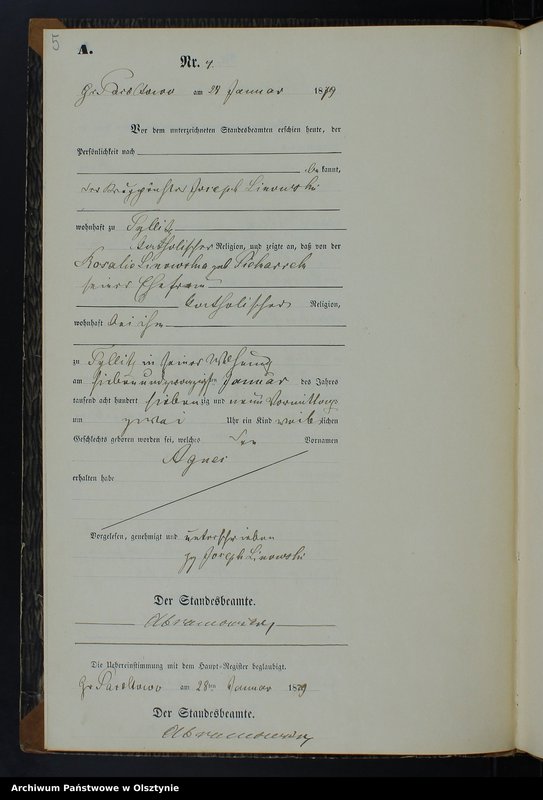 5
A.
Nr. 4.
Gr. Pacoltowo am 27 Januar 1879
Vor dem unterzeichneten Standesbeamten erschien heute, der
Persönlichkeit nach
bekannt,
der Joseph Linowski
wohnhaft zu Tyllitz
katholischer Religion, und zeigte an, daß von der
Rosalie Linowska geb
seiner Ehefrau
katholischer Religion,
wohnhaft bei ihm
zu Tyllitz in seiner Wohnung
am siebenundzwanzigsten Januar des Jahres
tausend acht hundert siebenzig und neun Vormittags
um zwei Uhr ein Kind weiblichen
Geschlechts geboren worden sei, welches den Vornamen
Agnes
erhalten habe
Vorgelesen, genehmigt und unterschrieben
gz Joseph Linowski
Der Standesbeamte.
Abramowski
Die Uebereinstimmung mit dem Haupt-Register beglaubigt.
Gr. Pacoltowo am 28ten Januar 1879
Der Standesbeamte.
Abramowski
Archiwum Państwowe w Olsztynie